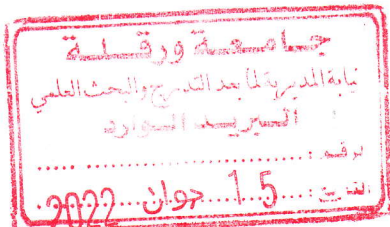 جامعة ورقلة
نيابة المديرية لما بعد التدرج والبحث العلمي
البريد الوارد
رقم : ..........
التاريخ : 15 جوان 2022